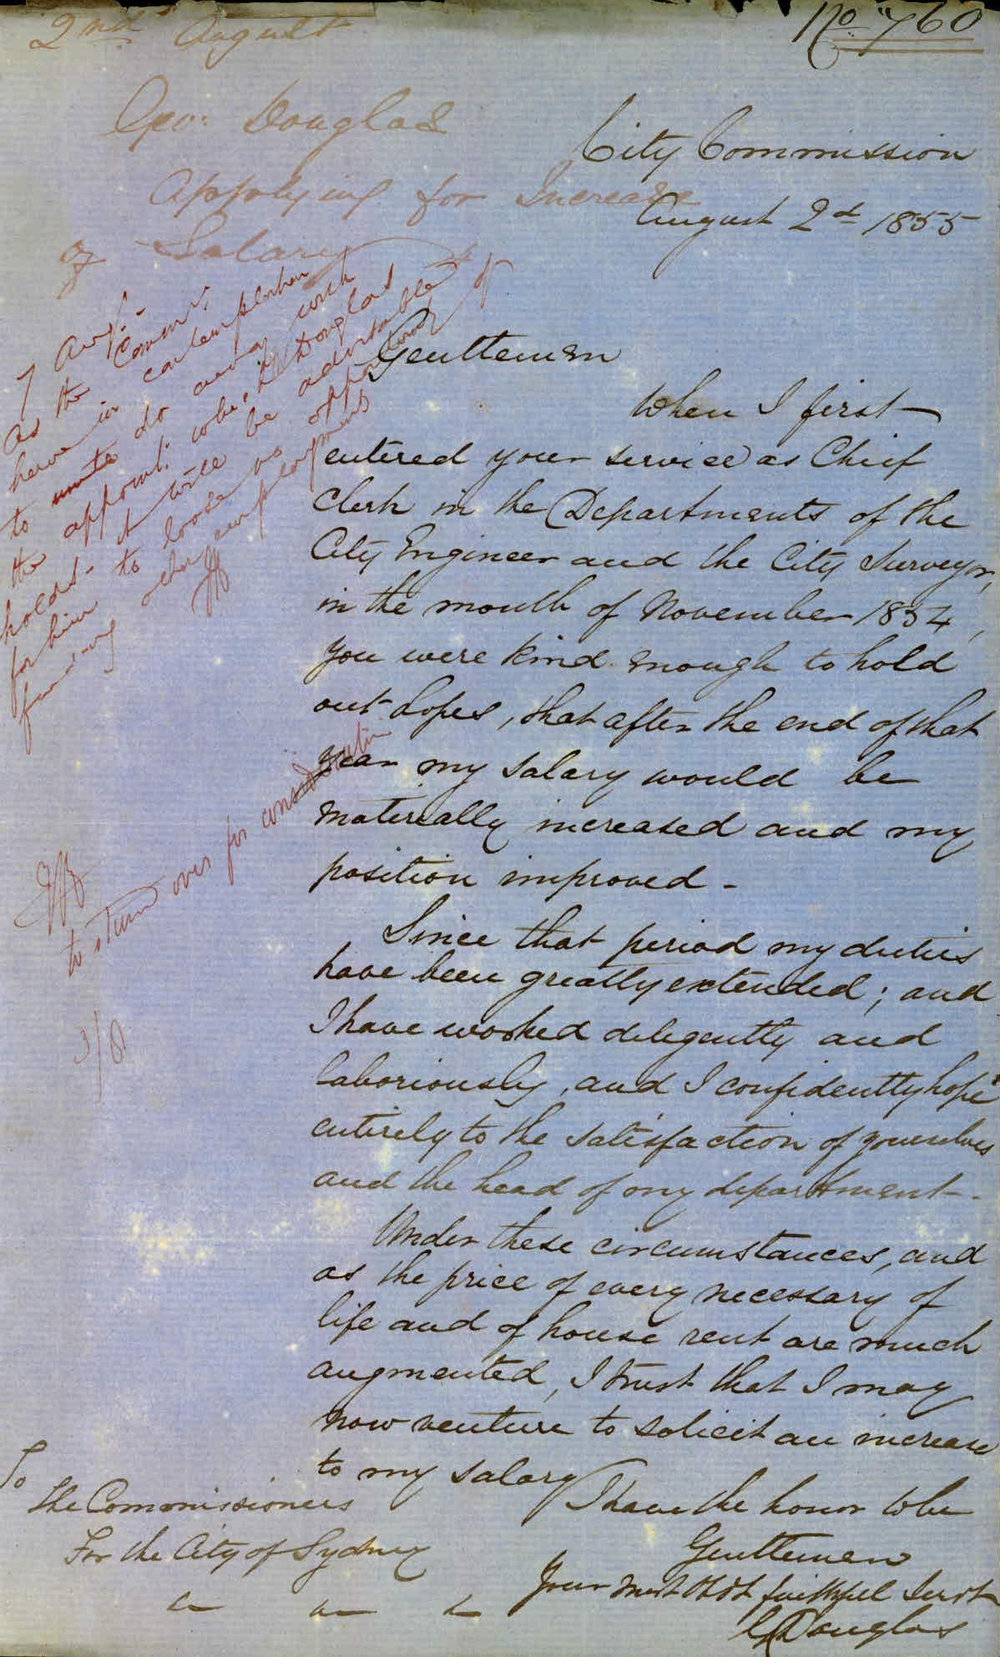 No 760
2nd August
Geo: Douglas
Applying for Increase
of Salary
City Commission
August 2d 1855
7 Augt.
As the Commrs.
have in contemplation
to unite do away with
the appoint: whch: Mr Douglas
holds - it will be advisable
for him to loose no opportunity of
find-ing other employment
to stand over for consideration
3/8
Gentlemen
When I first
entered your service as Chief
Clerk in the Departments of the
City Engineer and the City Surveyor,
in the month of November 1854,
you were kind enough to hold
out hopes, that after the end of that
year my salary would be
materially increased and my
position improved -
Since that period my duties
have been greatly extended; and
I have worked diligently and
laboriously, and I confidently hope
entirely to the satisfaction of yourselves
and the head of my department -
Under these circumstances, and
as the price of every necessary of
life and of house rent are much
augmented, I trust that I may
now venture to solicit an increase
to my salary
I have the honor to be
Gentlemen
Your most obdt faithful Servt
G Douglas
To
The Commissioners
For the City of Sydney